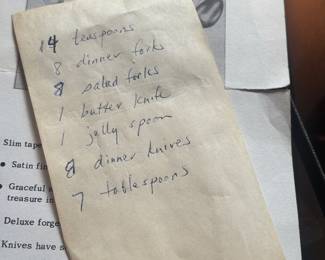 14 teaspoons
8 dinner forks
8 salad forks
1 butter knife
1 jelly spoon
8 dinner knives
7 tablespoons
Slim tape
• Satin fin
• Graceful
treasure in
Deluxe forge
Knives have s